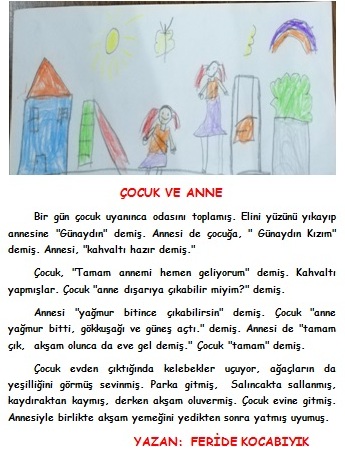 ÇOCUK VE ANNE
Bir gün çocuk uyanınca odasını toplamış. Elini yüzünü yıkayıp
annesine "Günaydın" demiş. Annesi de çocuğa, " Günaydın Kızım"
demiş. Annesi, "kahvaltı hazır demiş."
Çocuk, "Tamam annemi hemen geliyorum" demiş. Kahvaltı
yapmışlar. Çocuk "anne dışarıya çıkabilir miyim?" demiş.
Annesi "yağmur bitince çıkabilirsin" demiş. Çocuk "anne
yağmur bitti, gökkuşağı ve güneş açtı." demiş. Annesi de "tamam
çık, akşam olunca da eve gel demiş." Çocuk "tamam" demiş.
Çocuk evden çıktığında kelebekler uçuyor, ağaçların da
yeşilliğini görmüş sevinmiş. Parka gitmiş, Salıncakta sallanmış,
kaydıraktan kaymış, derken akşam oluvermiş. Çocuk evine gitmiş.
Annesiyle birlikte akşam yemeğini yedikten sonra yatmış uyumuş.
YAZAN: FERİDE KOCABIYIK